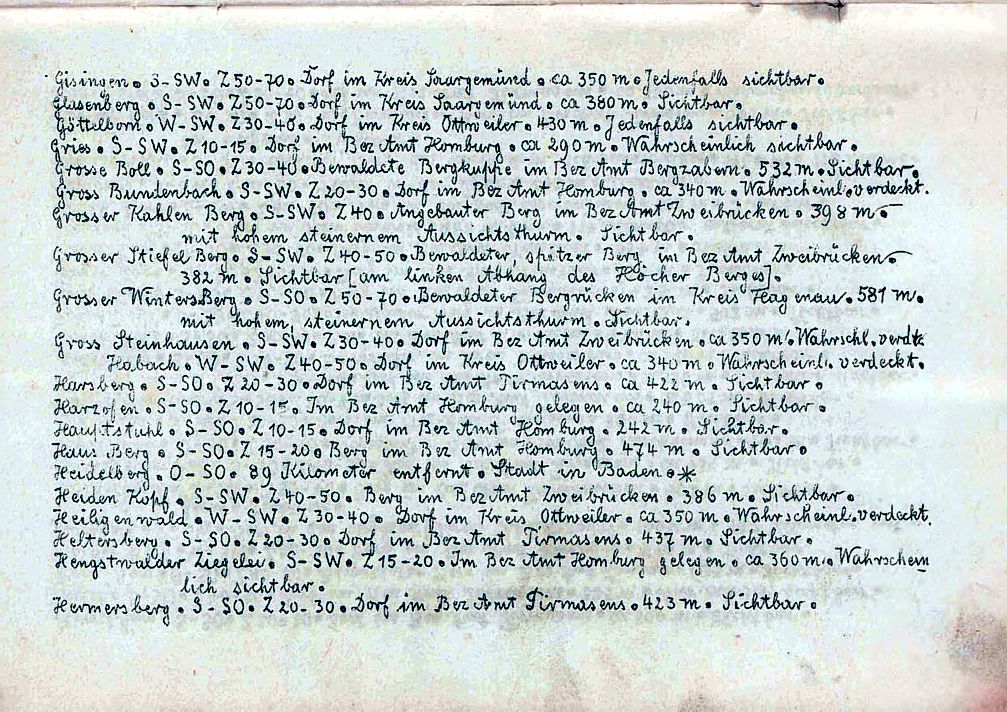 Gisingen. S-SW. Z 50-70. Dorf im Kreis Saargemünd. ca 350 m. Jedenfalls sichtbar.
Glasenberg. S-SW. Z 50-70. Dorf im Kreis Saargemünd. ca 380 m. Sichtbar.
Göttelborn. W-SW. Z 30-40. Dorf im Kreis Ottweiler. 430 m. Jedenfalls sichtbar.
Gries. S-SW. Z 10-15. Dorf im Bez Amt Homburg. ca 290 m. Wahrscheinlich sichtbar.
Grosse Boll. S-SO. Z 30-40. Bewaldete Bergkuppe im Bez Amt Bergzabern. 532 m. Sichtbar.
Gross Bundenbach. S-SW. Z 20-30. Dorf im Bez Amt Homburg. ca 340 m. Wahrscheinl. verdeckt.
Grosser Kahlen Berg. S-SW. Z 40. Angebauter Berg im Bez Amt Zweibrücken. 398 m.
mit hohem steinernem Aussichtsthurm. Sichtbar.
Grosser Stiefel Berg. S-SW. Z 40-50. Bewaldeter, spitzer Berg im Bez Amt Zweibrücken.
382 m. Sichtbar [am linken Abhang des Höcher Berges].
Grosser Winters Berg. S-SO. Z 50-70. Bewaldeter Bergrücken im Kreis Hagenau. 581 m.
mit hohem, steinernem Aussichtsthurm. Sichtbar.
Gross Steinhausen. S-SW. Z 30-40. Dorf im Bez Amt Zweibrücken. ca 350 m. Wahrschl. verdkt.
Habach. W-SW. Z 40-50. Dorf im Kreis Ottweiler. ca 340 m. Wahrscheinl. verdeckt.
Harsberg. S-SO. Z 20-30. Dorf im Bez Amt Pirmasens. ca 422 m. Sichtbar.
Harzofen. S-SO. Z 10-15. Im Bez Amt Homburg gelegen. ca 240 m. Sichtbar.
Hauptstuhl. S-SO. Z 10-15. Dorf im Bez Amt Homburg. 242 m. Sichtbar.
Haus Berg. S-SO. Z 15-20. Berg im Bez Amt Homburg. 474 m. Sichtbar.
Heidelberg. O-SO. 89 Kilometer entfernt. Stadt in Baden. *
Heiden Kopf. S-SW. Z 40-50. Berg im Bez Amt Zweibrücken. 386 m. Sichtbar.
Heiligenwald. W-SW. Z 30-40. Dorf im Kreis Ottweiler. ca 350 m. Wahrscheinl. verdeckt.
Heltersberg. S-SO. Z 20-30. Dorf im Bez Amt Pirmasens. 437 m. Sichtbar.
Hengstwalder Ziegelei. S-SW. Z 15-20. Im Bez Amt Homburg gelegen. ca 360 m. Wahrschein
lich sichtbar.
Hermersberg. S-SO. Z 20-30. Dorf im Bez Amt Pirmasens. 423 m. Sichtbar.